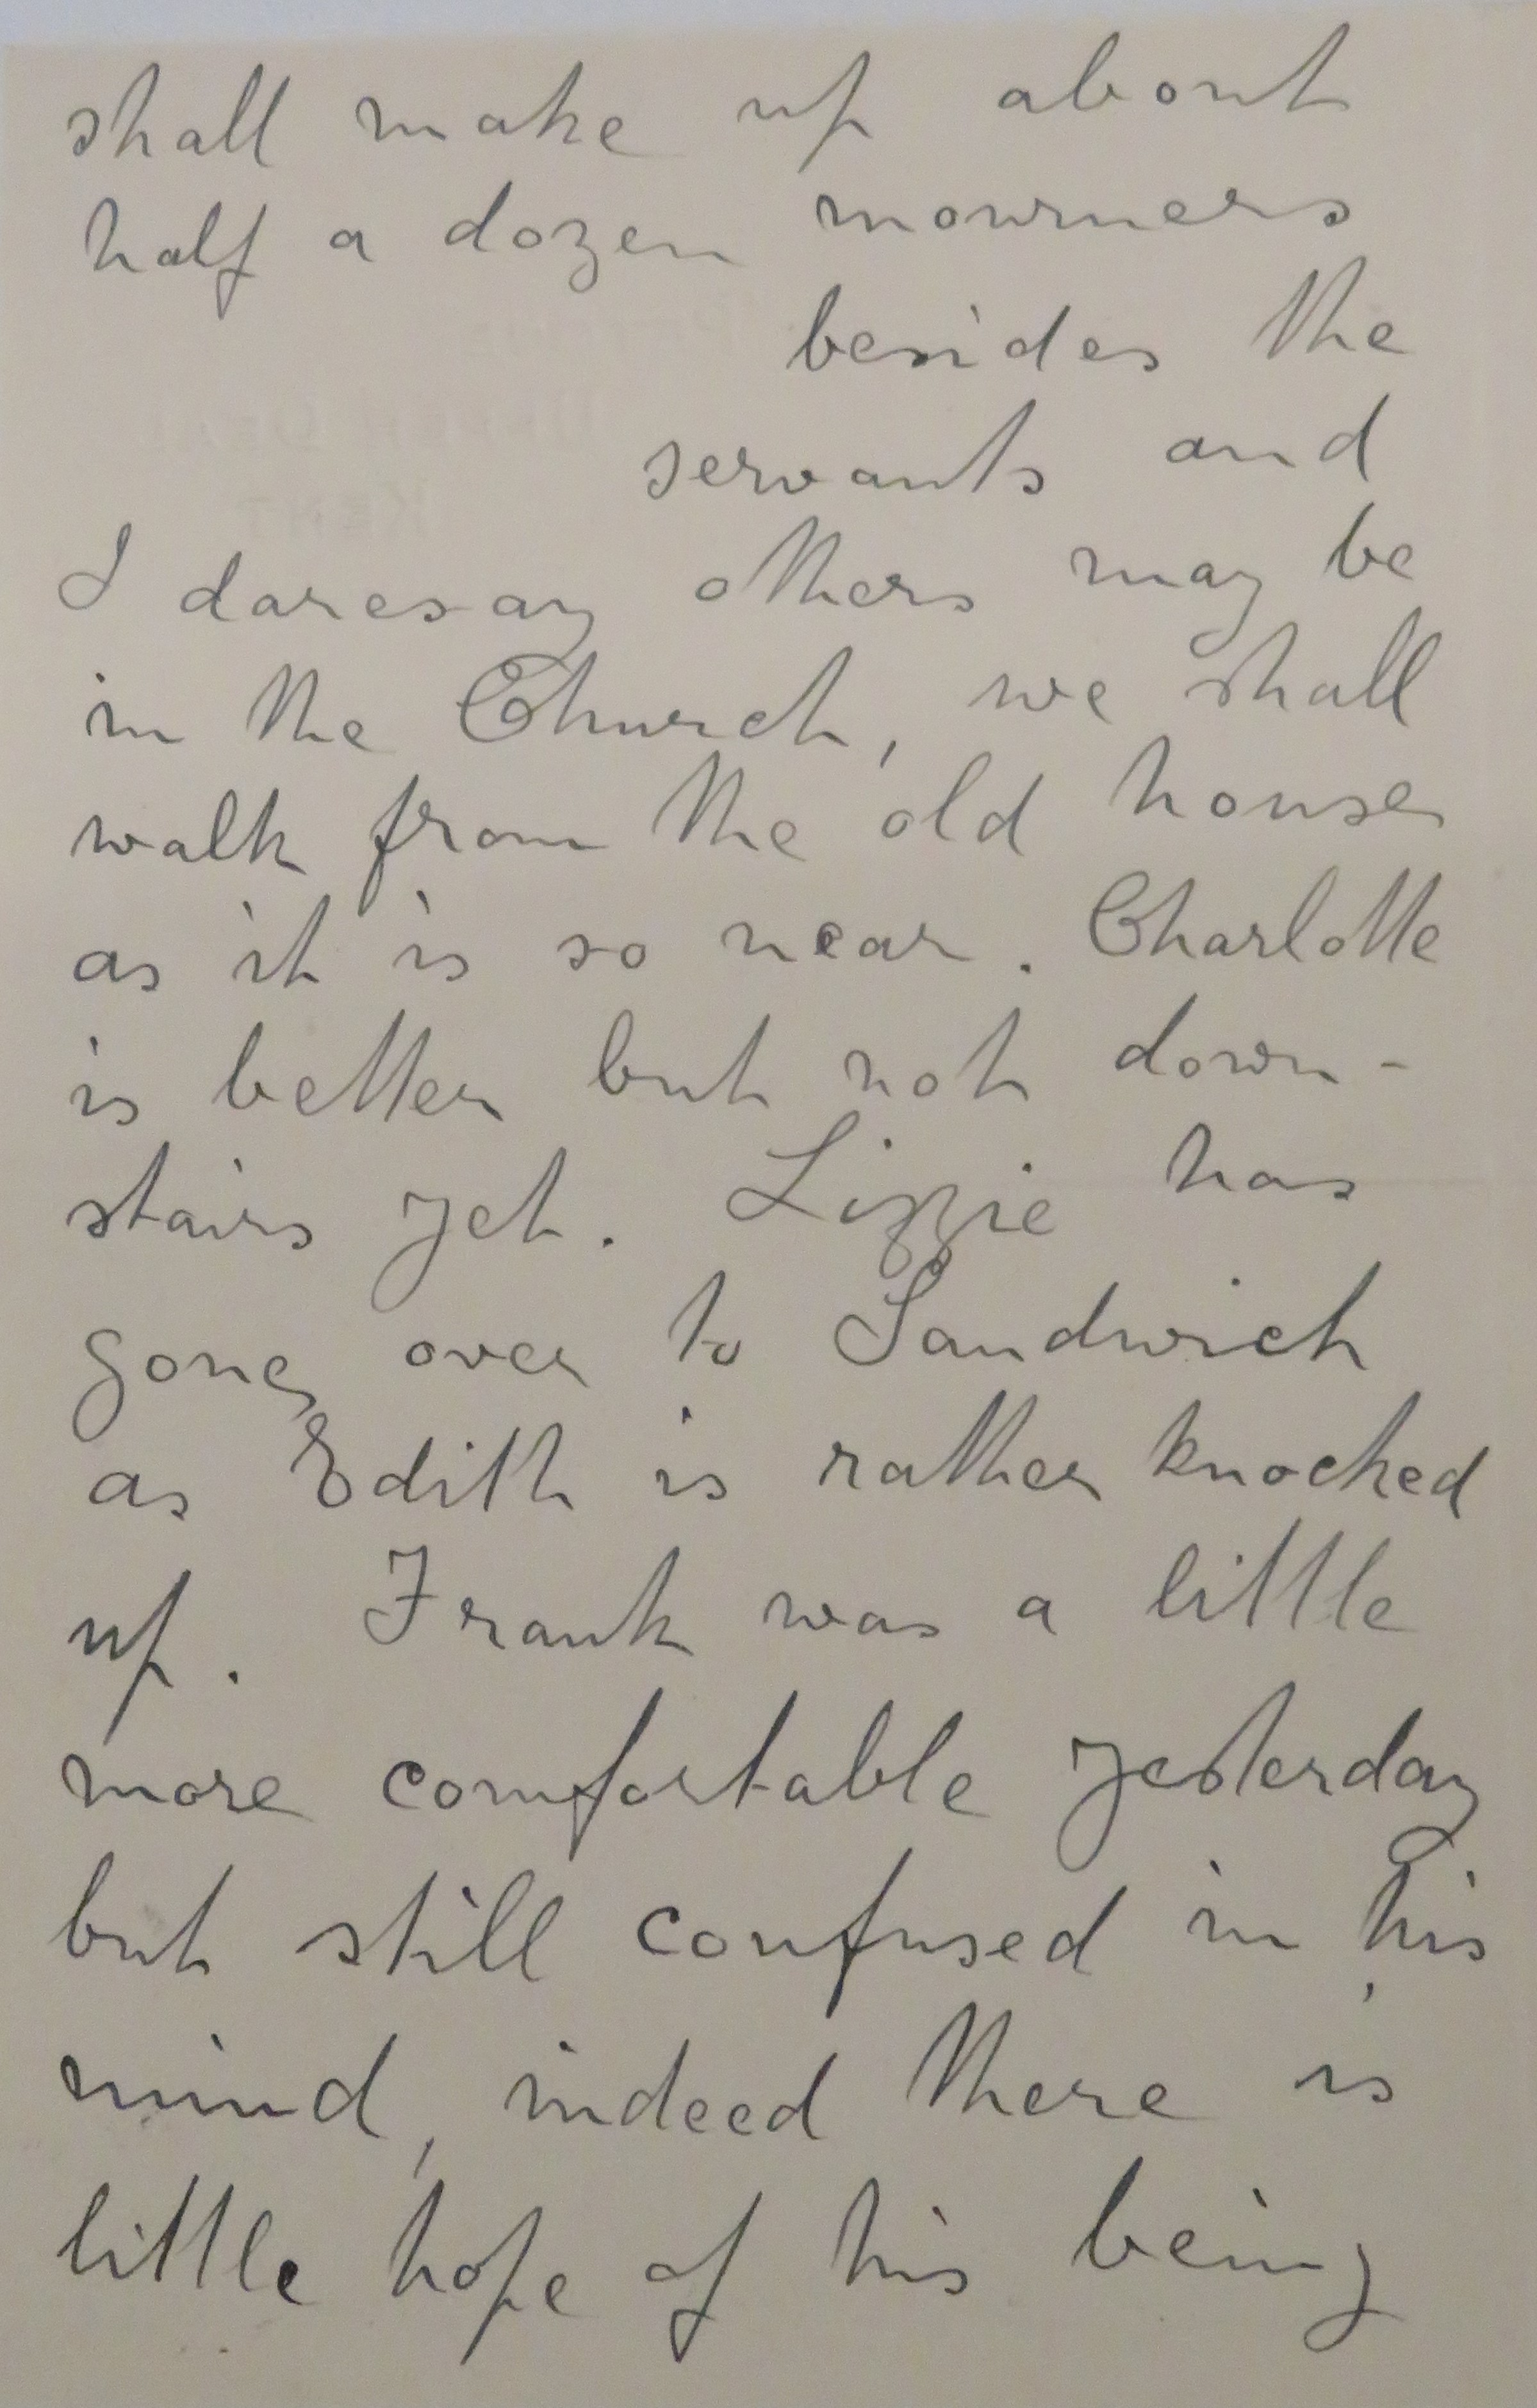 shall make up about
half a dozen mourners
besides the
servants and
I daresay others may be
in the Church, we shall
walk from the old house
as it is so near. Charlotte
is better but not down-
stairs yet. Lizzie has
gone over to Sandwich
as Edith is rather knocked
up. Frank was a little
more comfortable yesterday
but still confused in his
mind, indeed there is
little hope of his being